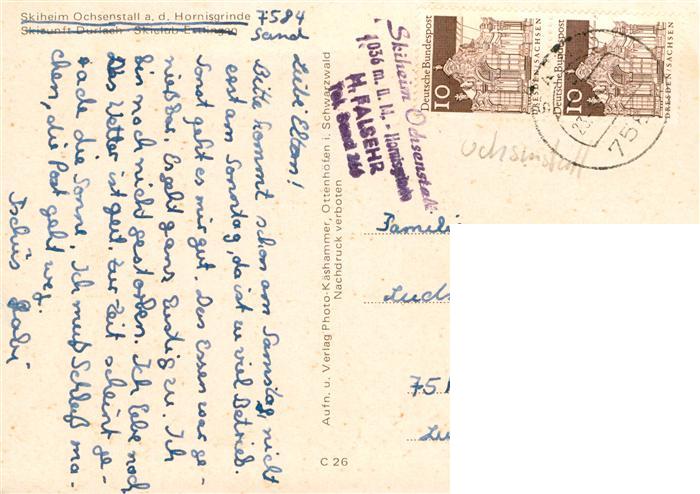 Skiheim Ochsenstall a. d. Hornisgrinde
Skizunft Durlach - Skiclub Ettlingen
7584
Sand
Liebe Eltern!
Bitte kommt schon am Samstag, nicht
erst am Sonntag, da ist zu viel Betrieb.
Sonst geht es mir gut. Das Essen war ge-
nießbar. Es geht ganz lustig zu. Ich
bin noch nicht gestorben. Ich lebe noch
Das Wetter ist gut. Zur Zeit scheint ge-
rade die Sonne. Ich muß Schluß ma-
chen, die Post geht weg.
Tschüs
Gabi
Aufn. u. Verlag Photo-Käshammer, Ottenhöfen i. Schwarzwald
Nachdruck verboten
C 26
Skiheim Ochsenstall
1036 m. ü. M. - Hornisgrinde
H. FALSEHR
Tel. Sand 266
Deutsche Bundespost
10
DRESDEN/SACHSEN
Deutsche Bundespost
10
DRESDEN/SACHSEN
23.
758
Ochsenstall
Famili
75